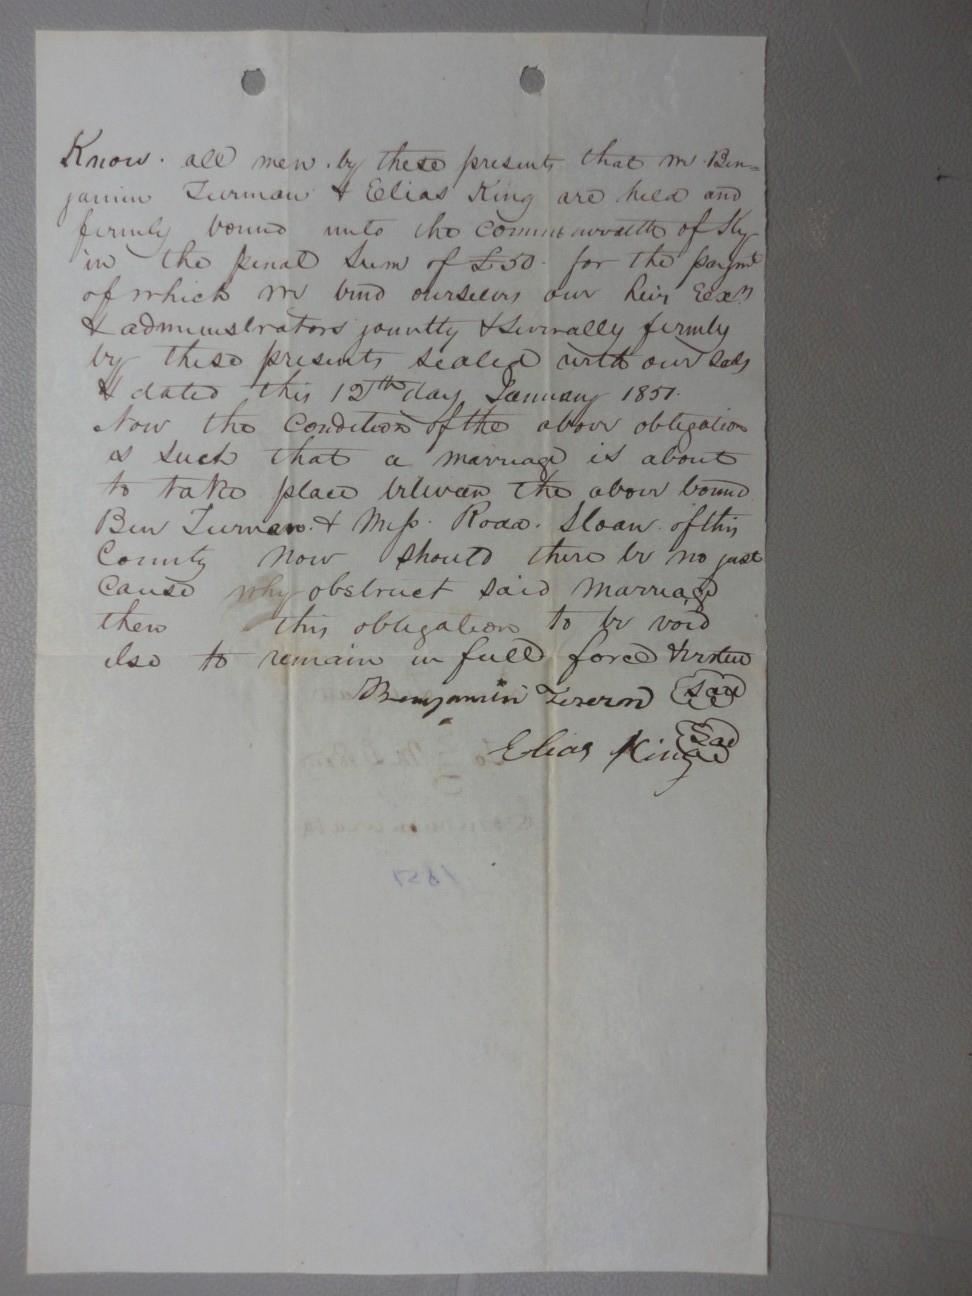 Know all men by these present that we Ben=
jamin Turman & Elias King are held and
firmly bound unto the Commonwealth of Ky
in the penal Sum of £50. for the paymt
of which we bind ourselves our heirs Exrs
& administrators jointly & severally firmly
by these presents sealed with our seals
& dated this 12th day January 1851.
Now the Condition of the above obligation
is such that a marriage is about
to take place between the above bound
Ben Turman & Miss Roda Sloan of this
County Now should there be no just
Cause why obstruct said Marriage
then this obligation to be void
else to remain in full force & virtue
Benjamin Seal
Elias King Seal
1851